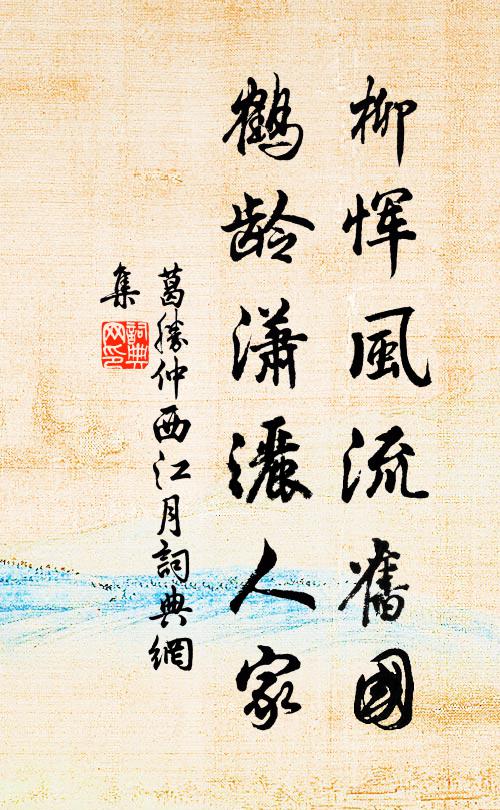 柳恽風流舊國
鶴龄潇灑人家
葛勝仲西江月詞典網
集
詞典
网印